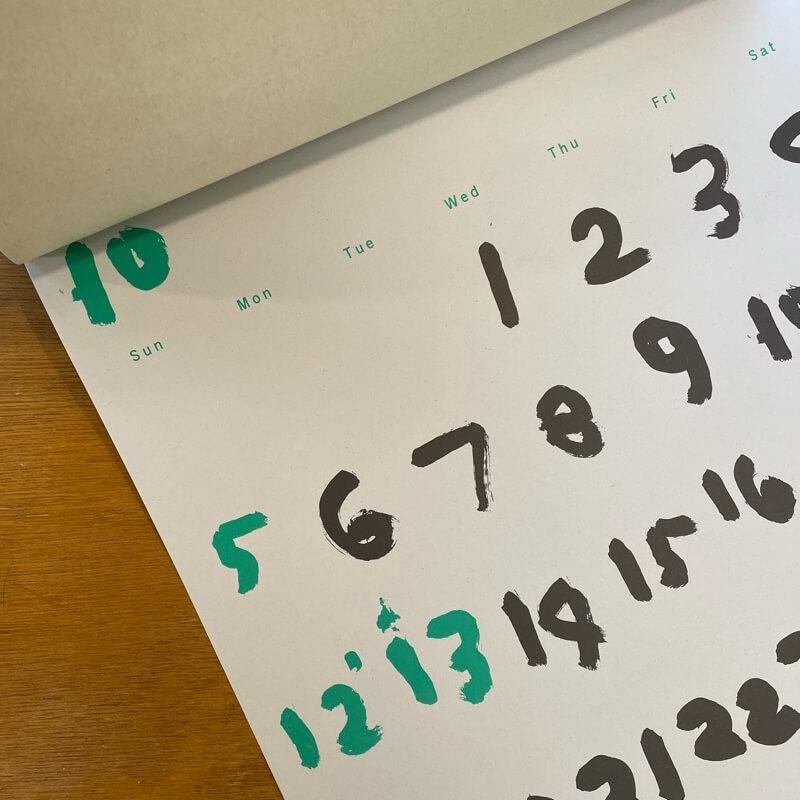 10
Sun Mon Tue Wed Thu Fri Sat
1 2 3
5 6 7 8 9 10
12 13 14 15 16
21 22